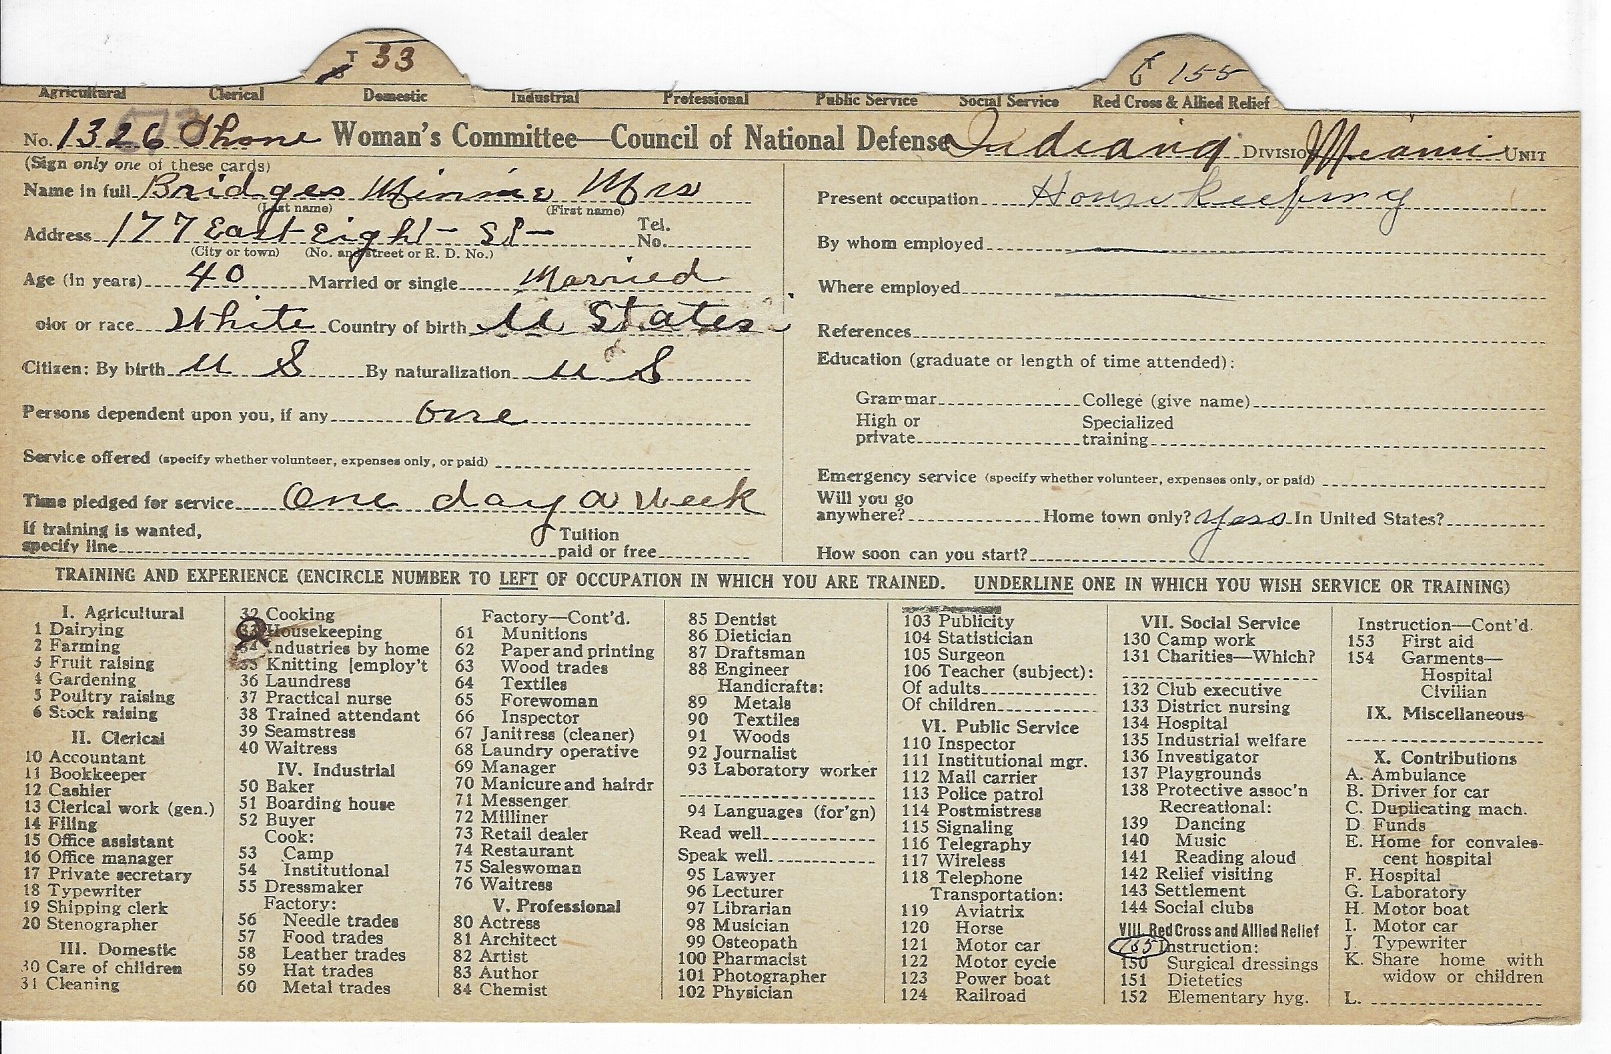 T 33
T 155
Agricultural Clerical Domestic Industrial Professional Public Service Social Service Red Cross & Allied Relief
No. 1326 Phone Woman's Committee—Council of National Defense Indiana DIVISION Miami UNIT
(Sign only one of these cards)
Name in full Bridges Minnie Mrs
(Last name) (First name)
Address 177 East Eight St Tel. No.
(City or town) (No. and street or R. D. No.)
Age (in years) 40 Married or single Married
olor or race White Country of birth U States
Citizen: By birth U S By naturalization U S
Persons dependent upon you, if any one
Service offered (specify whether volunteer, expenses only, or paid)
Time pledged for service One day a week
If training is wanted, specify line Tuition paid or free
Present occupation House keeping
By whom employed
Where employed
References
Education (graduate or length of time attended):
Grammar College (give name)
High or private Specialized training
Emergency service (specify whether volunteer, expenses only, or paid)
Will you go anywhere? Home town only? yess In United States?
How soon can you start?
TRAINING AND EXPERIENCE (ENCIRCLE NUMBER TO LEFT OF OCCUPATION IN WHICH YOU ARE TRAINED. UNDERLINE ONE IN WHICH YOU WISH SERVICE OR TRAINING)
I. Agricultural
1 Dairying
2 Farming
3 Fruit raising
4 Gardening
5 Poultry raising
6 Stock raising
II. Clerical
10 Accountant
11 Bookkeeper
12 Cashier
13 Clerical work (gen.)
14 Filing
15 Office assistant
16 Office manager
17 Private secretary
18 Typewriter
19 Shipping clerk
20 Stenographer
III. Domestic
30 Care of children
31 Cleaning
32 Cooking
33 Housekeeping
34 Industries by home
35 Knitting [employ't
36 Laundress
37 Practical nurse
38 Trained attendant
39 Seamstress
40 Waitress
IV. Industrial
50 Baker
51 Boarding house
52 Buyer
Cook:
53 Camp
54 Institutional
55 Dressmaker
Factory:
56 Needle trades
57 Food trades
58 Leather trades
59 Hat trades
60 Metal trades
Factory—Cont'd.
61 Munitions
62 Paper and printing
63 Wood trades
64 Textiles
65 Forewoman
66 Inspector
67 Janitress (cleaner)
68 Laundry operative
69 Manager
70 Manicure and hairdr
71 Messenger
72 Milliner
73 Retail dealer
74 Restaurant
75 Saleswoman
76 Waitress
V. Professional
80 Actress
81 Architect
82 Artist
83 Author
84 Chemist
85 Dentist
86 Dietician
87 Draftsman
88 Engineer
Handicrafts:
89 Metals
90 Textiles
91 Woods
92 Journalist
93 Laboratory worker
94 Languages (for'gn)
Read well
Speak well
95 Lawyer
96 Lecturer
97 Librarian
98 Musician
99 Osteopath
100 Pharmacist
101 Photographer
102 Physician
103 Publicity
104 Statistician
105 Surgeon
106 Teacher (subject):
Of adults
Of children
VI. Public Service
110 Inspector
111 Institutional mgr.
112 Mail carrier
113 Police patrol
114 Postmistress
115 Signaling
116 Telegraphy
117 Wireless
118 Telephone
Transportation:
119 Aviatrix
120 Horse
121 Motor car
122 Motor cycle
123 Power boat
124 Railroad
VII. Social Service
130 Camp work
131 Charities—Which?
132 Club executive
133 District nursing
134 Hospital
135 Industrial welfare
136 Investigator
137 Playgrounds
138 Protective assoc'n
Recreational:
139 Dancing
140 Music
141 Reading aloud
142 Relief visiting
143 Settlement
144 Social clubs
VIII. Red Cross and Allied Relief
155 Instruction:
150 Surgical dressings
151 Dietetics
152 Elementary hyg.
Instruction—Cont'd
153 First aid
154 Garments—
Hospital
Civilian
IX. Miscellaneous
X. Contributions
A. Ambulance
B. Driver for car
C. Duplicating mach.
D Funds
E. Home for convales-
cent hospital
F. Hospital
G. Laboratory
H. Motor boat
I. Motor car
J. Typewriter
K. Share home with
widow or children
L.